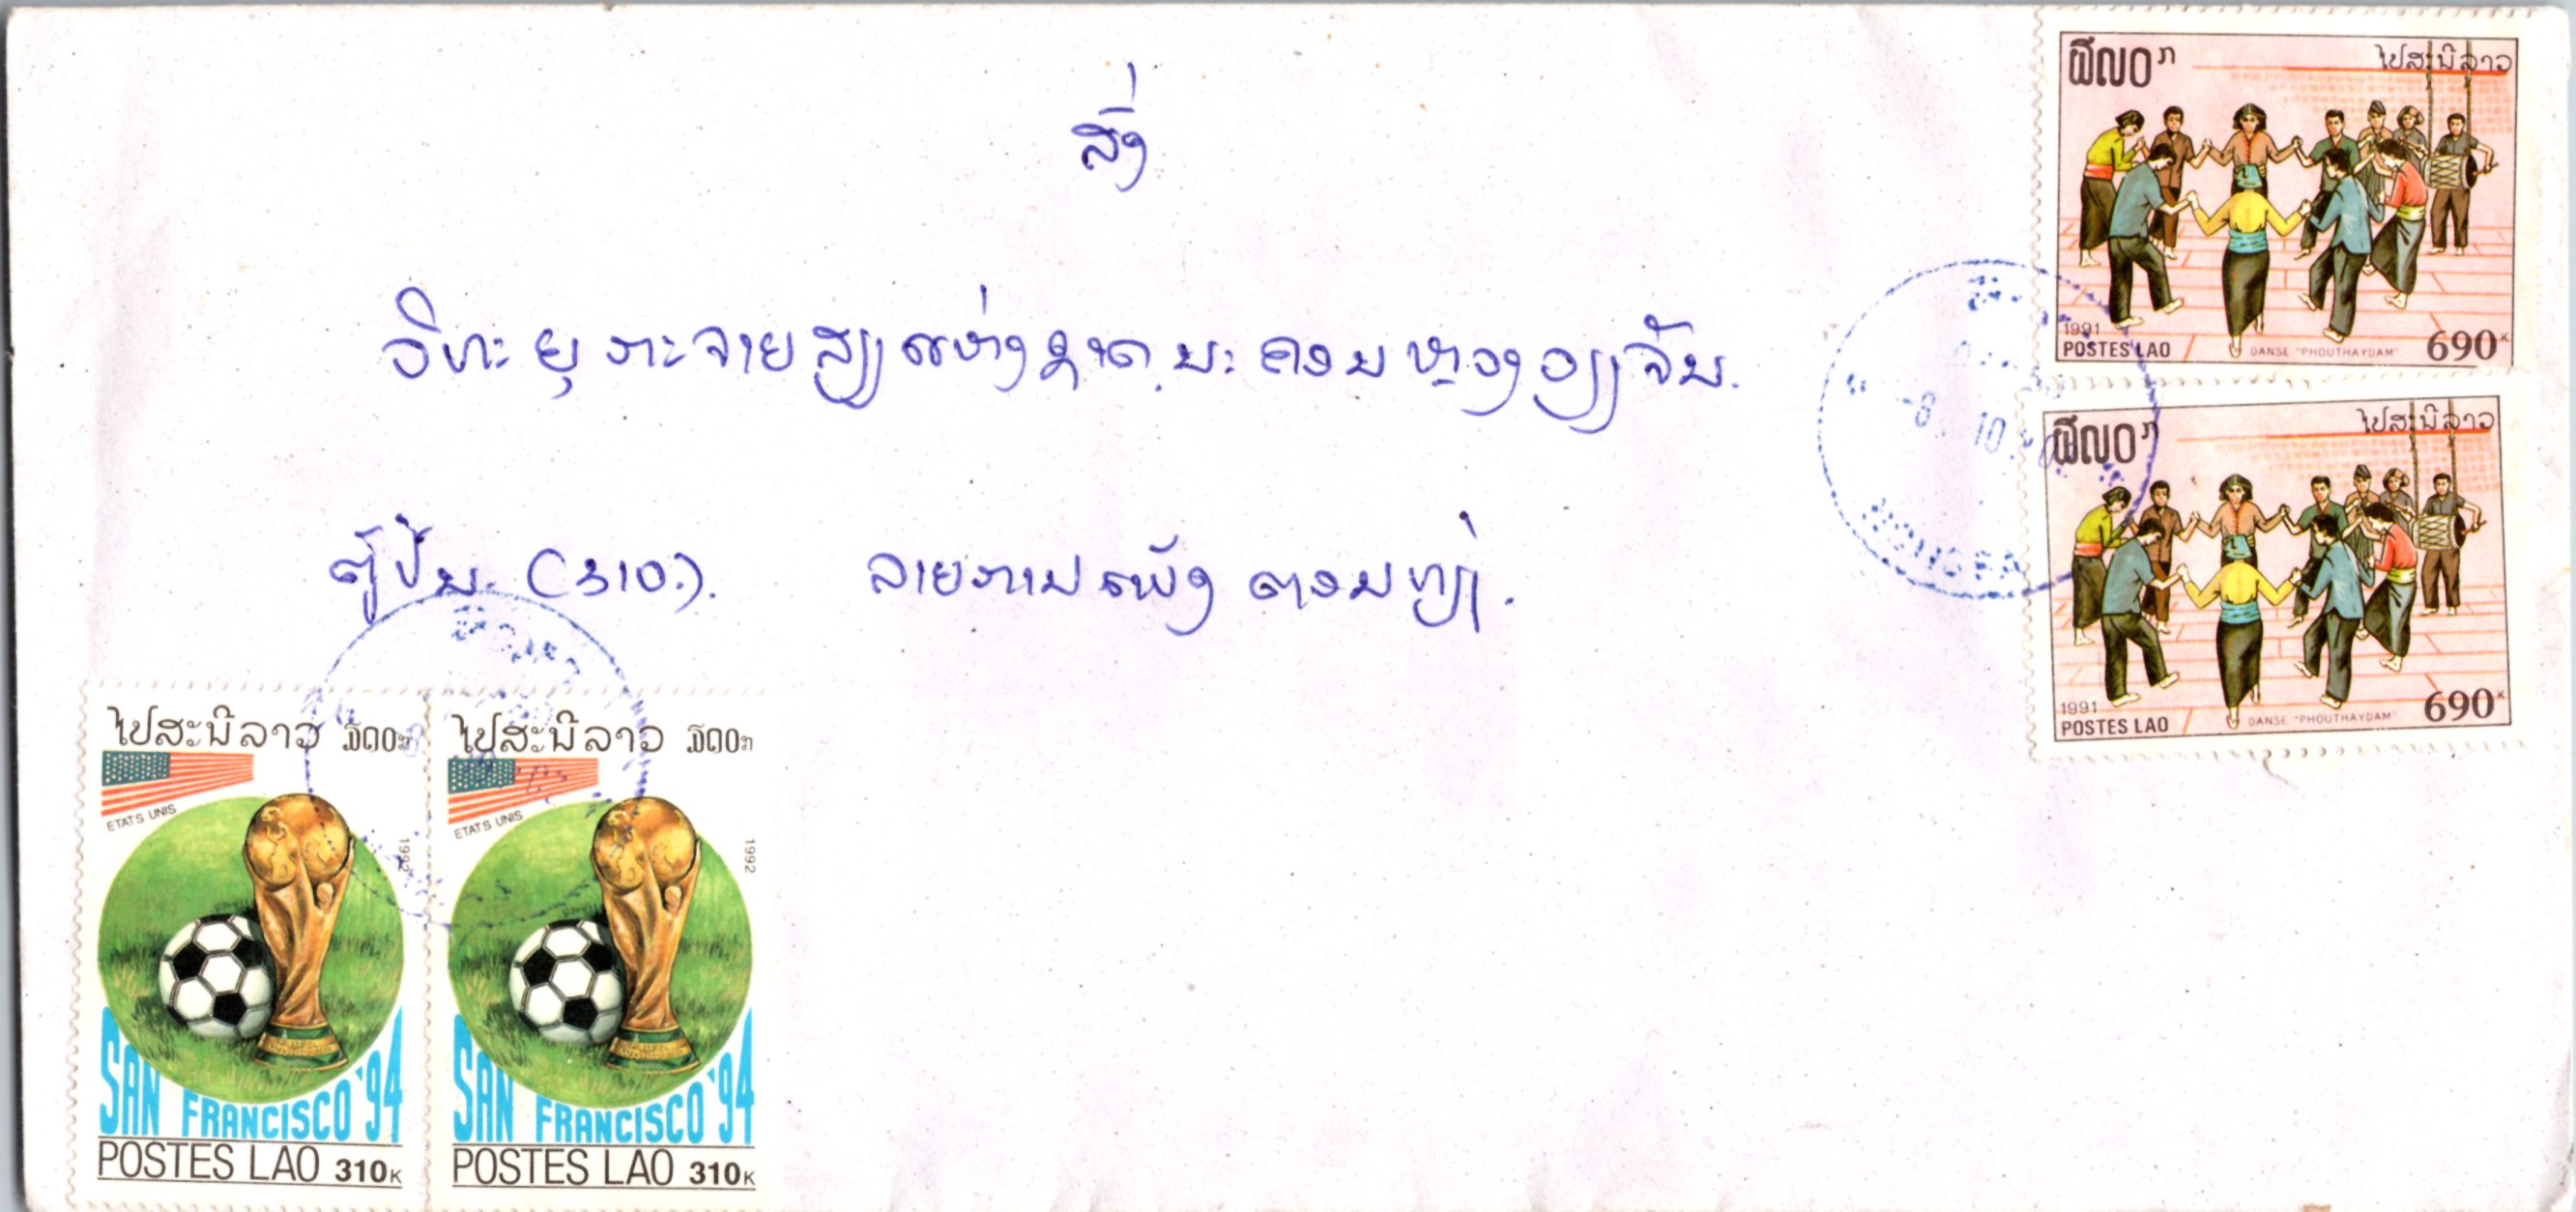 ສົ່ງ
ວິທະຍຸກະຈາຍສຽງແຫ່ງຊາດ ນະຄອນຫຼວງວຽງຈັນ.
ຕູ້ປ.ນ. (310.). ລາຍການເພັງ ຕອນທ່ຽງ.
໖໙໐ກ ໄປສະນີລາວ
1991
POSTES LAO DANSE "PHOUTHAYDAM" 690K
-8. 10.
໖໙໐ກ ໄປສະນີລາວ
1991
POSTES LAO DANSE "PHOUTHAYDAM" 690K
ໄປສະນີລາວ ໓໑໐ກ
ETATS UNIS
1992
SAN FRANCISCO '94
POSTES LAO 310K
ໄປສະນີລາວ ໓໑໐ກ
ETATS UNIS
1992
SAN FRANCISCO '94
POSTES LAO 310K